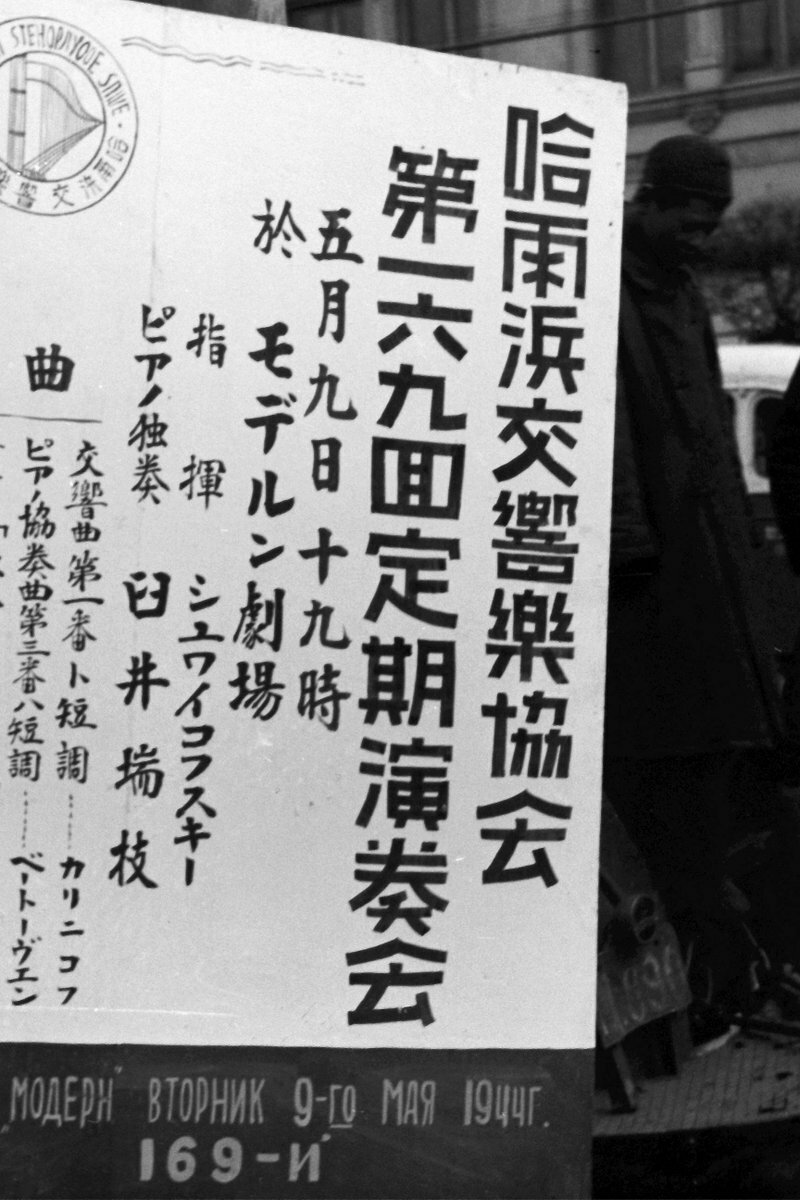 哈爾浜交響樂協会
第一六九回定期演奏会
五月九日 十九時
於 モデルン劇場
指揮 シュワイコフスキー
ピアノ独奏 臼井瑞枝
曲
交響曲第一番ト短調……カリニコフ
ピアノ協奏曲第三番ハ短調……ベートーヴエン
„МОДЕРН" ВТОРНИК 9-го МАЯ 1944г.
169-й